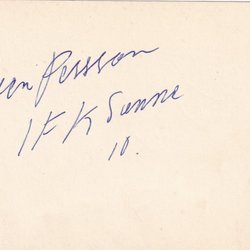 Persson
IFK Sunne
10.